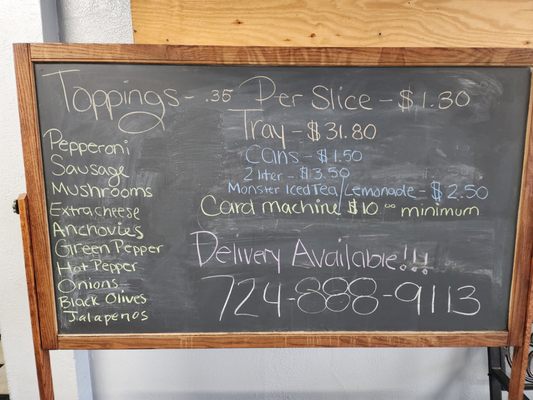 Toppings - .35 Per Slice - $1.80
Tray - $31.80
Cans - $1.50
2 liter - $3.50
Monster Iced Tea/Lemonade - $2.50
Card machine $10.00 minimum
Pepperoni
Sausage
Mushrooms
Extra cheese
Anchovies
Green Pepper
Hot Pepper
Onions
Black Olives
Jalapenos
Delivery Available!!!
724-888-9113